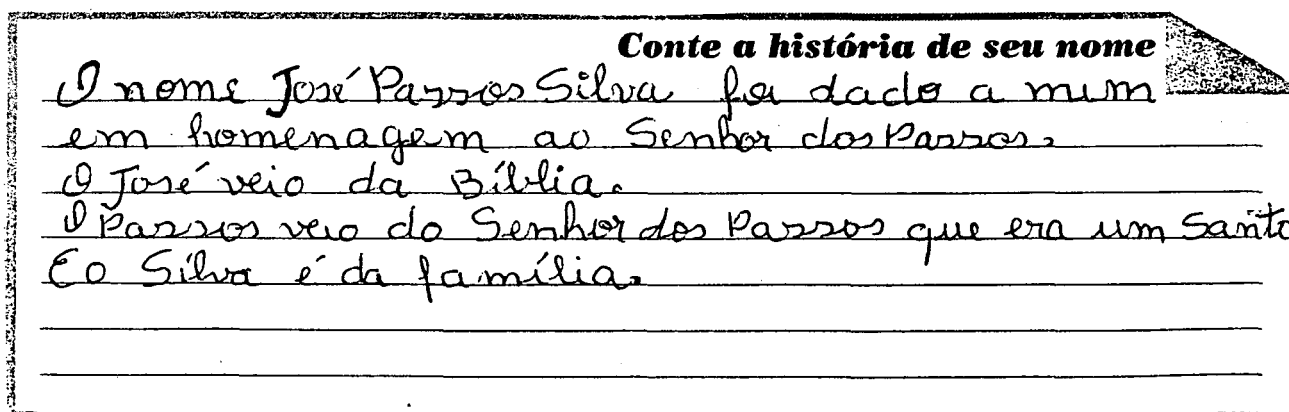 Conte a história de seu nome
O nome José Passos Silva foi dado a mim
em homenagem ao Senhor dos Passos.
O José veio da Bíblia.
O Passos veio do Senhor dos Passos que era um Santo
E o Silva é da família.